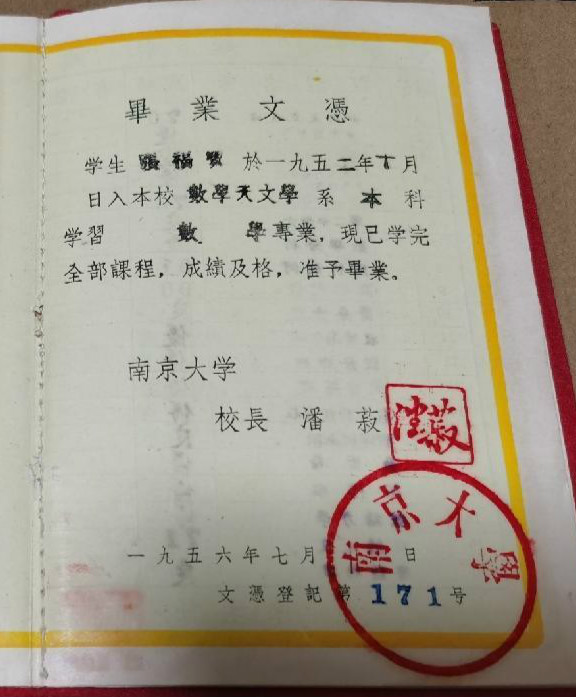 畢業文憑
学生 張福 於一九五二年十月
日入本校 數學天文學 系 本 科
学習 數 學專業，現已学完
全部課程，成績及格，准予畢業。
南京大学
校長 潘菽
潘菽
南京大學
一九五六年七月 日
文憑登記第 171 号